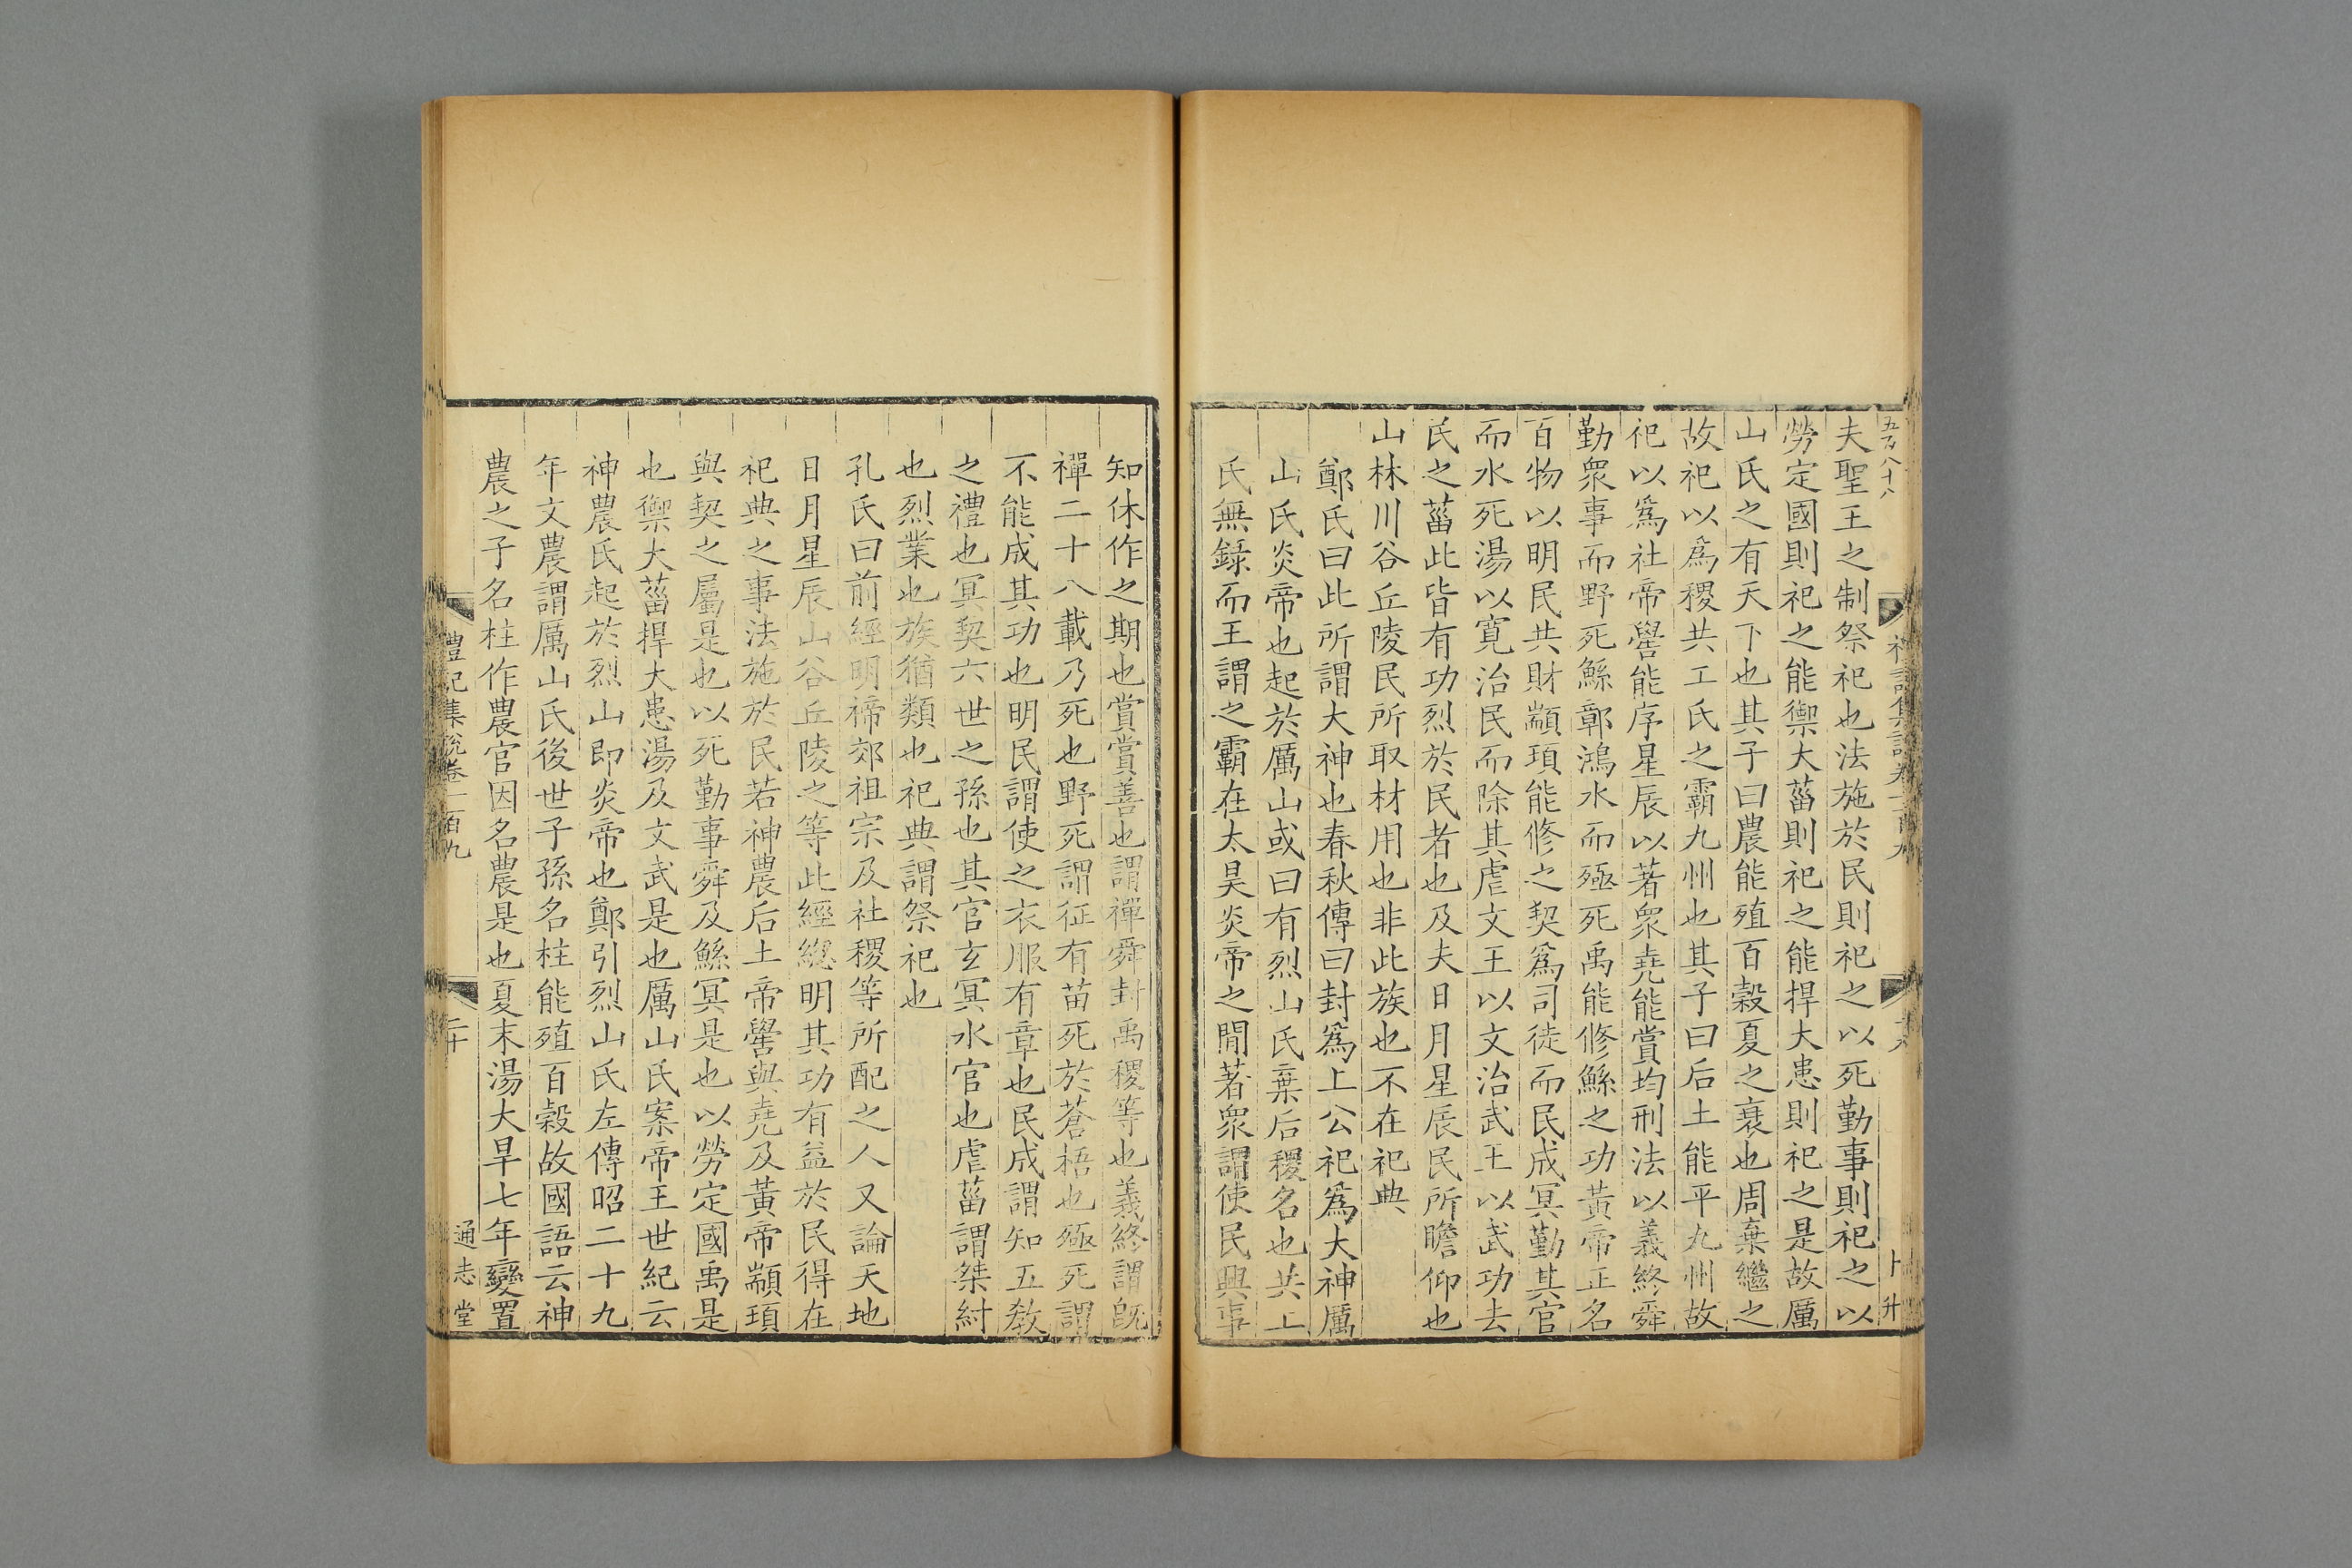 夫聖王之制祭祀也法施於民則祀之以死勤事則祀之以
勞定國則祀之能禦大菑則祀之能捍大患則祀之是故厲
山氏之有天下也其子曰農能殖百穀夏之衰也周棄繼之
故祀以爲稷共工氏之霸九州也其子曰后土能平九州故
祀以爲社帝嚳能序星辰以著衆堯能賞均刑法以義終舜
勤衆事而野死鯀鄣鴻水而殛死禹能修鯀之功黃帝正名
百物以明民共財顓頊能修之契爲司徒而民成冥勤其官
而水死湯以寬治民而除其虐文王以文治武王以武功去
民之菑此皆有功烈於民者也及夫日月星辰民所瞻仰也
山林川谷丘陵民所取材用也非此族也不在祀典
鄭氏曰此所謂大神也春秋傳曰封爲上公祀爲大神厲
山氏炎帝也起於厲山或曰有烈山氏棄后稷名也共工
氏無錄而王謂之霸在太昊炎帝之閒著衆謂使民興事
知休作之期也賞賞善也謂禪舜封禹稷等也義終謂旣
禪二十八載乃死也野死謂征有苗死於蒼梧也殛死謂
不能成其功也明民謂使之衣服有章也民成謂知五敎
之禮也冥契六世之孫也其官玄冥水官也虐菑謂桀紂
也烈業也族猶類也祀典謂祭祀也
孔氏曰前經明禘郊祖宗及社稷等所配之人又論天地
日月星辰山谷丘陵之等此經緫明其功有益於民得在
祀典之事法施於民若神農后土帝嚳與堯及黃帝顓頊
與契之屬是也以死勤事舜及鯀冥是也以勞定國禹是
也禦大菑捍大患湯及文武是也厲山氏案帝王世紀云
神農氏起於烈山即炎帝也鄭引烈山氏左傳昭二十九
年文農謂厲山氏後世子孫名柱能殖百穀故國語云神
農之子名柱作農官因名農是也夏末湯大旱七年變置
禮記集說卷一百九
二十
通志堂